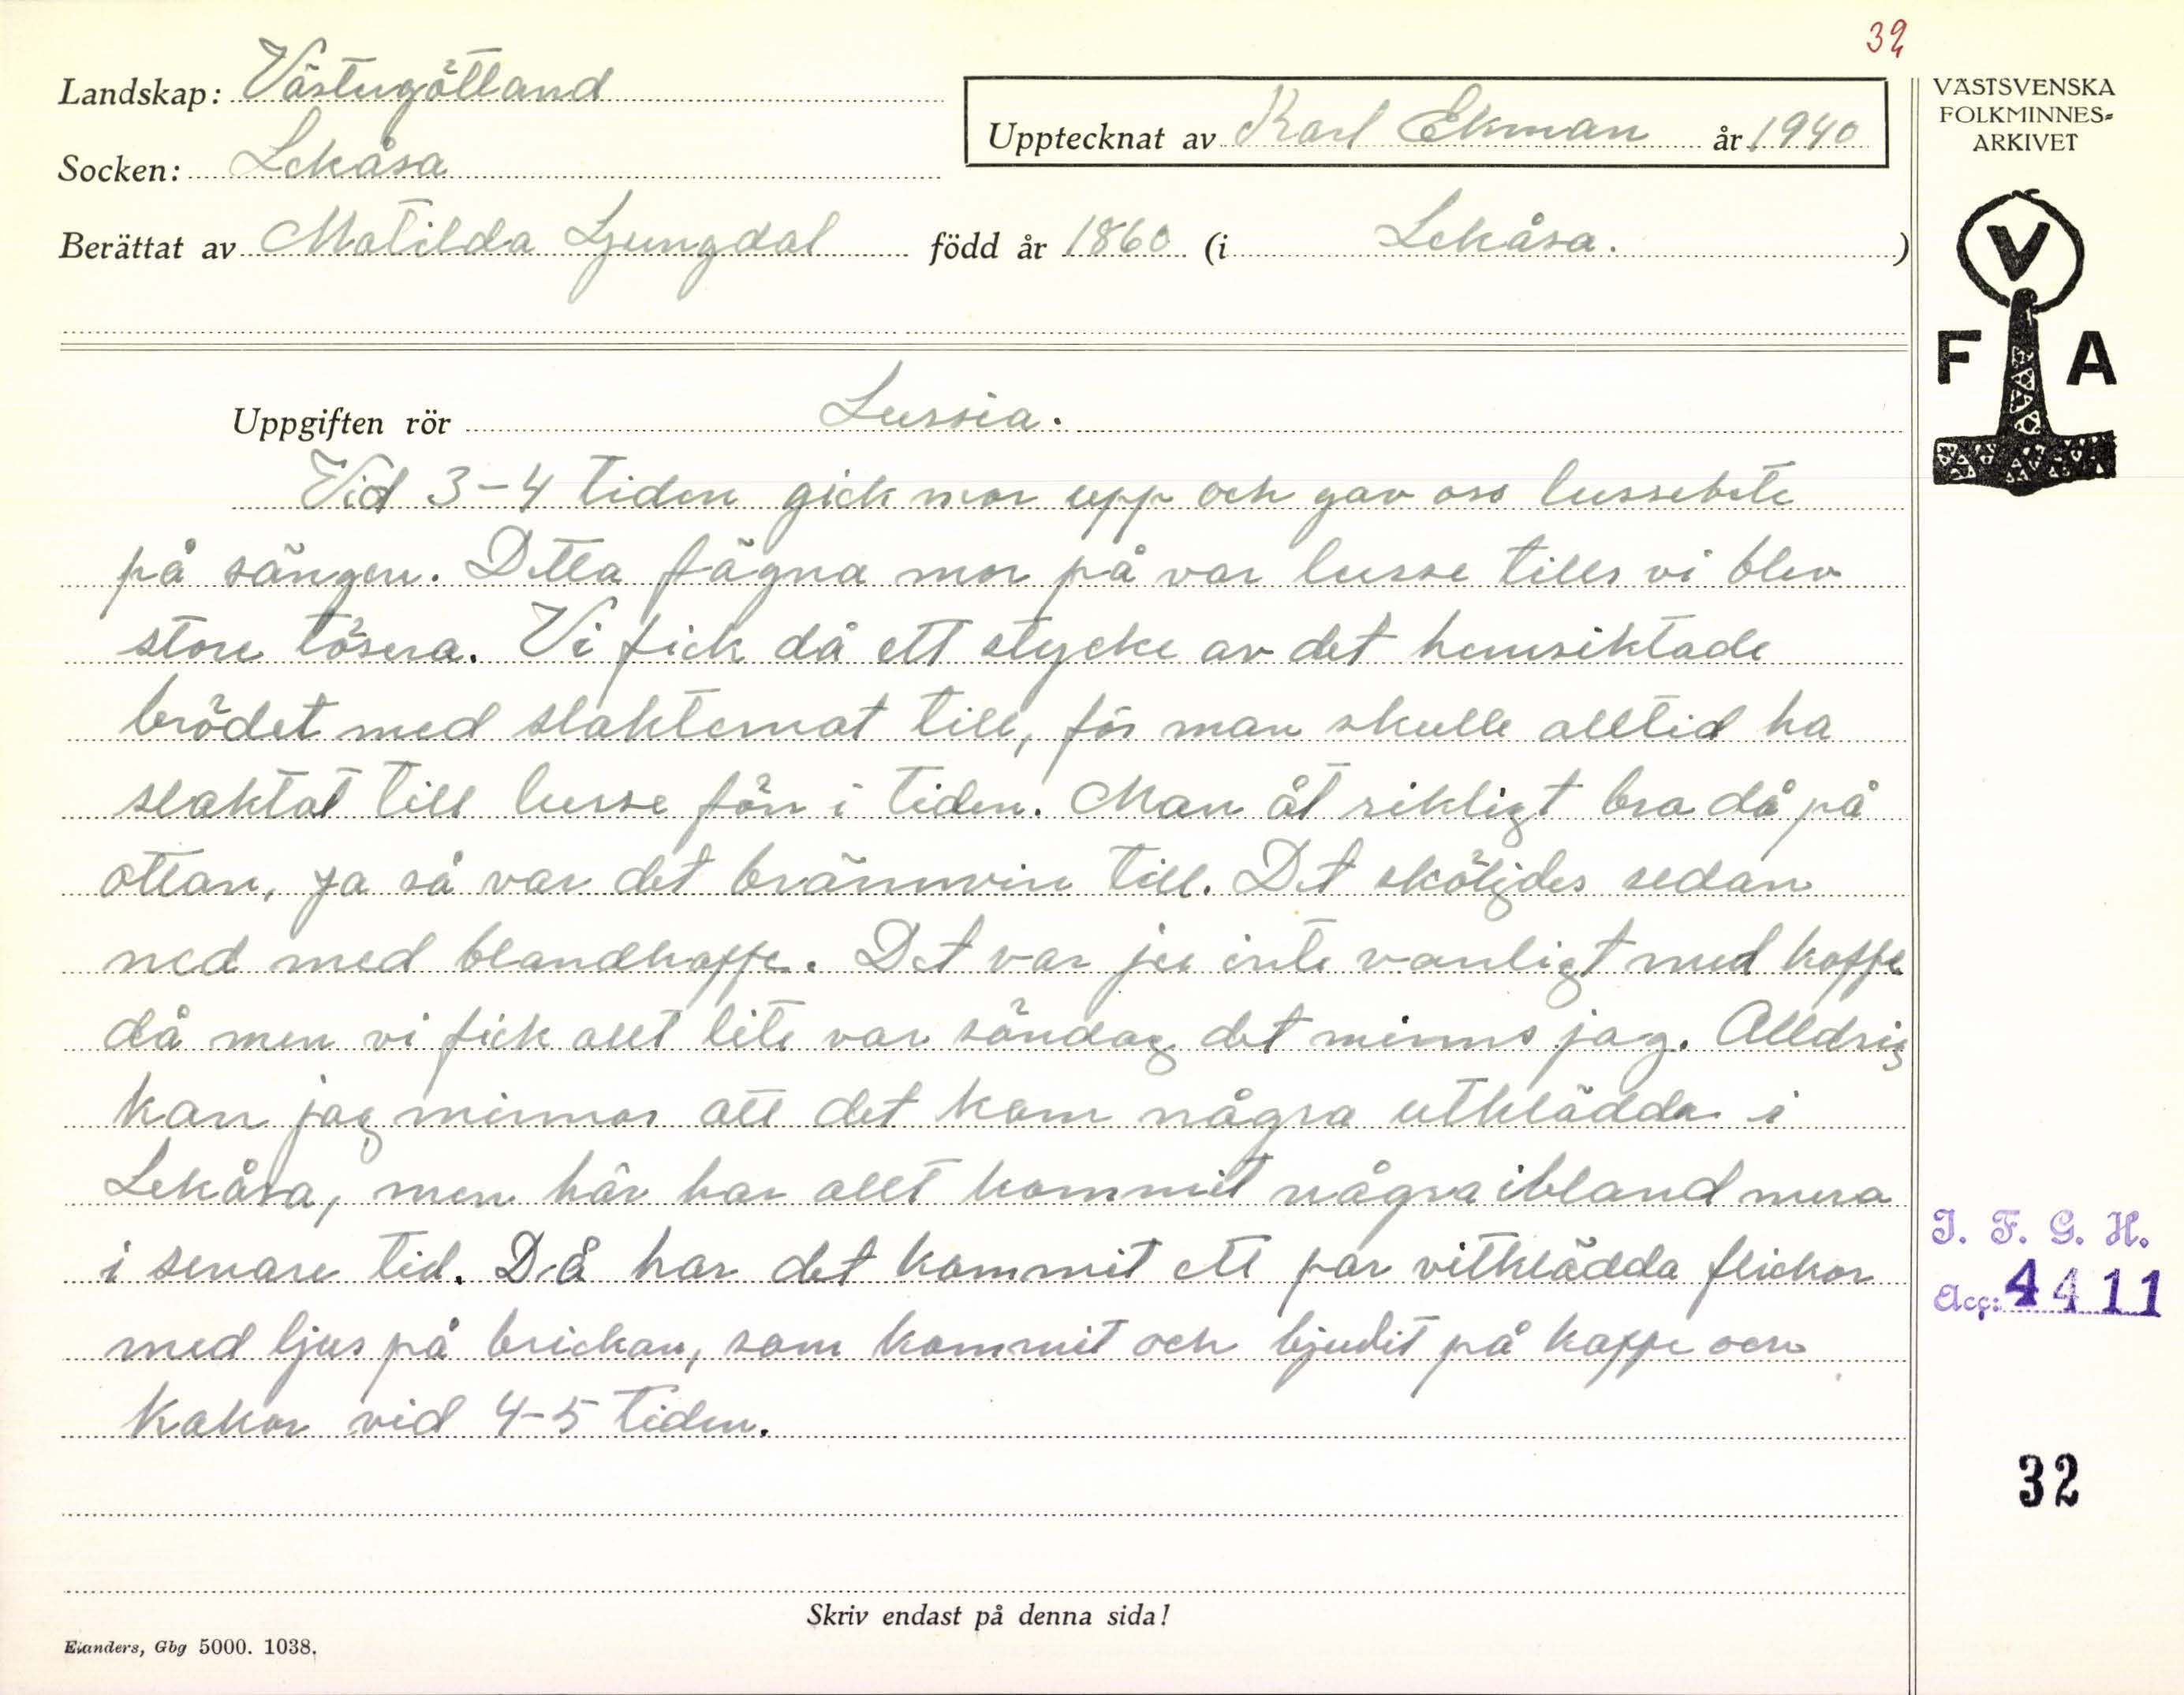 32
Landskap: Västergötland
Socken: Lekåsa
Upptecknat av Karl Ekman år 1940
Berättat av Matilda Ljungdal född år 1860 (i Lekåsa.)
VÄSTSVENSKA
FOLKMINNES=
ARKIVET
V
F A
Uppgiften rör Lussia.
Vid 3-4 tiden gick mor upp och gav oss lussebete
på sängen. Detta fägna mor på var lusse tills vi blev
store tösera. Vi fick då ett stycke av det hemsiktade
brödet med slaktemat till, för man skulle alltid ha
slaktat till lusse förr i tiden. Man åt rikligt bra då på
ottan, ja så var det brännvin till. Det sköljdes sedan
ned med blandkaffe. Det var ju inte vanligt med kaffe
då men vi fick allt lite var söndag det minns jag. Alldrig
kan jag minnas att det kom några utklädda i
Lekåsa, men här har allt kommit några ibland mera
i senare tid. Då har det kommit ett par vitklädda flickor
med ljus på brickan, som kommit och bjudit på kaffe och
kakor vid 4-5 tiden.
I. F. G. H.
Acc: 4411
32
Skriv endast på denna sida!
Elanders, Gbg 5000. 1038.